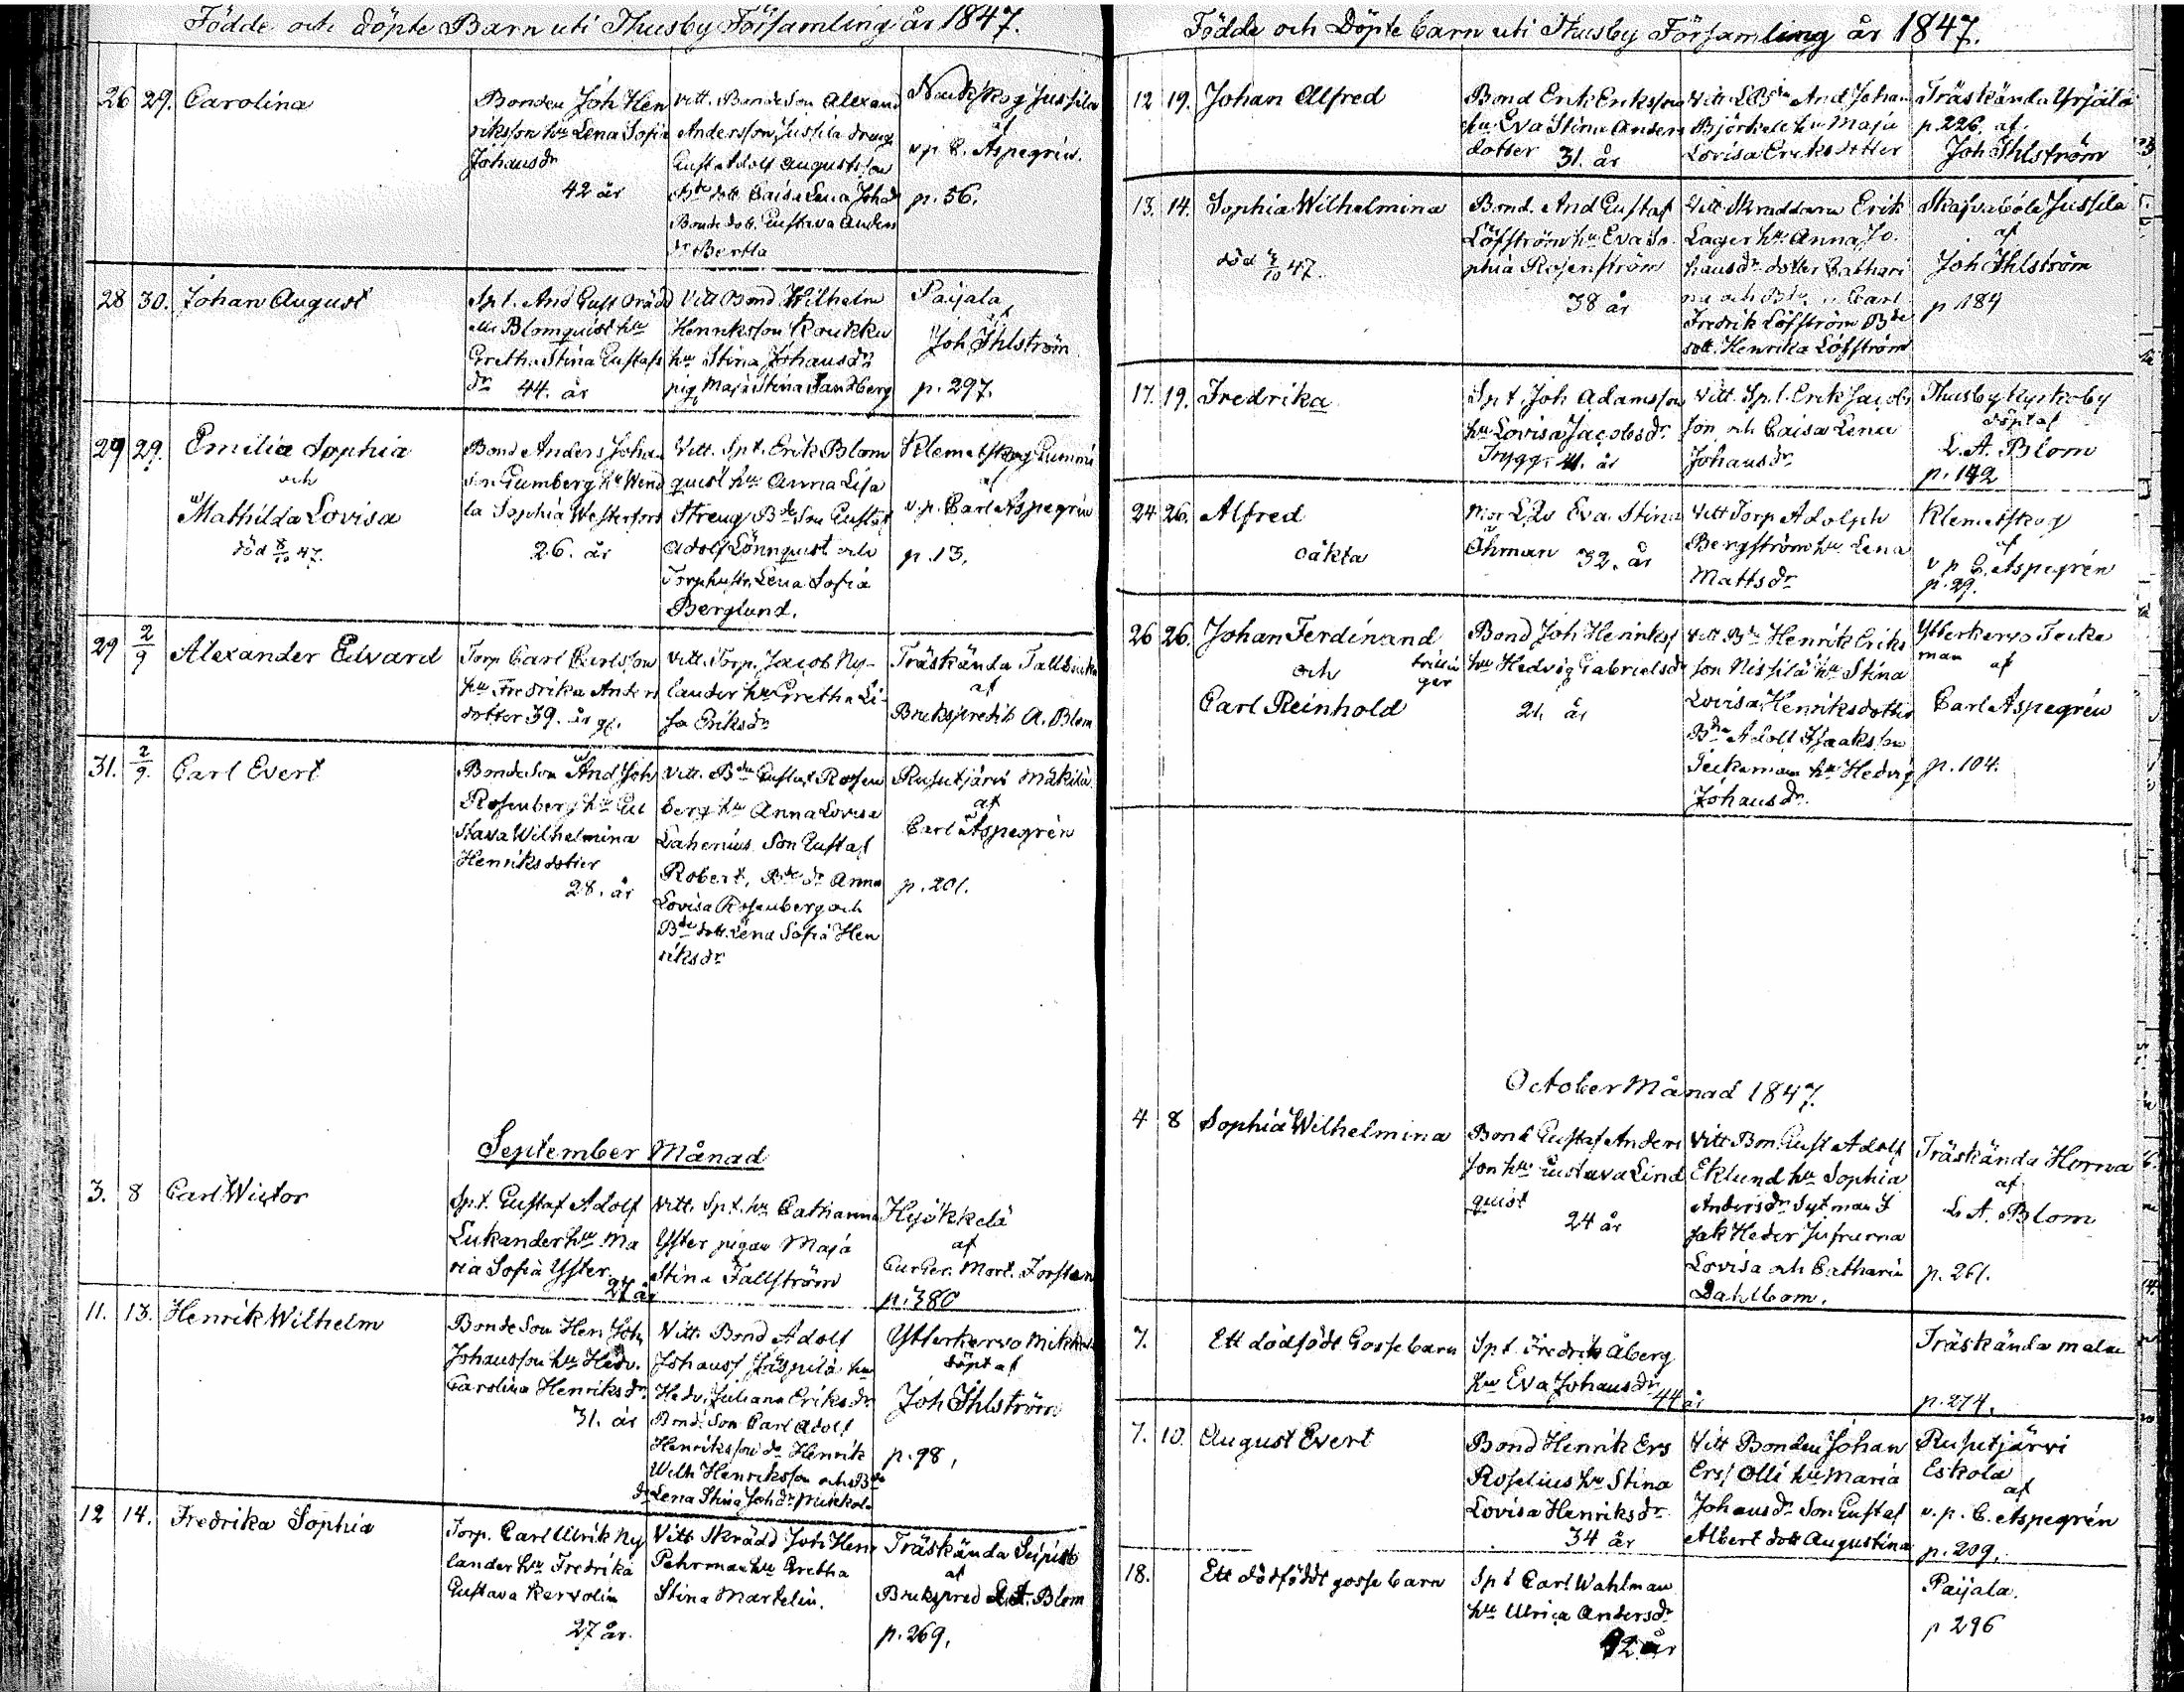 Födde och döpte Barn uti Thusby Församling år 1847.
26 29. Carolina
Bonden Joh Hen
riksson hu Lena Sofia
Johansdr
42 år
Vitt. Bonde Son Alexand
Andersson Jussila dreng
Gust Adolf Augustsson
Bde dott Caisa Lena Johd
Bonde dott. Gustava Anders
dr Bertla
Naukskog Jussila
af
v.p. C. Aspegrén.
p. 56.
28 30. Johan August
Spt. And Gust
Blomquist hu
Gretha Stina Gustafs
dr 44. år
Vitt Bond. Wilhelm
Henriksson Koukku
hu Stina Johansdr
pig. Maja Stina Sandberg
Paijala
af
Joh Ihlström
p. 297.
29 29. Emilia Sophia
och
Mathilda Lovisa
död 8/10 47.
Bond Anders Johan
son Gumberg hu Wend
la Sophia Westerfors
26. år
Vitt. Spt. Erik Blom
quist hu Anna Lisa
Streng Bde Son Gustaf
Adolf Lönnquist och
Torp hustr. Lena Sofia
Berglund.
Klemetskog Gummi
af
v.p. Carl Aspegrén
p. 13.
29 2/9 Alexander Edvard
Torp Carl Carlsson
hu Fredrika Anders
dotter 39. år gl.
Vitt. Torp. Jacob Ny-
lander hu Gretha Li-
sa Eriksdr
Träskända Tallbacka
af
Brukspredik A. Blom
31. 2/9. Carl Evert
Bonde Son And Joh
Rosenberg hu Gu
stava Wilhelmina
Henriksdotter
28. år
Vitt. Bden Gustaf Rosen
berg hu Anna Lovisa
Lahenius Son Gustaf
Robert, Bde dr Anna
Lovisa Rosenberg och
Bde dott. Lena Sofia Hen
riksdr
Rusutjärvi Mäkilä
af
Carl Aspegrén
p. 201.
September Månad
3. 8 Carl Wictor
Spt. Gustaf Adolf
Lukander hu Ma
ria Sofia Yster
27 år
Vitt. Spt. hu Catharina
Yster pigan Maja
Stina Fallström
Hyökkelä
af
Mort. Forstén
p. 380
11. 13. Henrik Wilhelm
Bonde Son Hen Joh
Johansson hu Hedv.
Carolina Henriksdr.
31. år
Vitt. Bond Adolf
Johanss. Jäspilä hu
Hedv. Juliana Eriksdr
Bond. Son Carl Adolf
Henriksson do Henrik
Wilh Henriksson och Bde
dr Lena Stina Johdr
Ytterkervo
döpt af
Joh Ihlström
p. 98,
12 14. Fredrika Sophia
Torp. Carl Ulrik Ny
lander hu Fredrika
Gustava Kervolin
27 år.
Vitt Skrädd Joh Henr
Pehrman hu Gretha
Stina Martelin.
Träskända Seipilä
af
Brukspred L. A. Blom
p. 269,
Födde och Döpte barn uti Thusby Församling år 1847.
12 19. Johan Alfred
Bond Erik Eriksson
hu Eva Stina Anders
dotter 31. år
Vitt And Johan
Björkell hu Maja
Lovisa Eriksdotter
Träskända Yrjälä
p. 226. af.
Joh Ihlström
13. 14. Sophia Wilhelmina
död 4/10 47.
Bond. And Gustaf
Löfström hu Eva So-
phia Rosenström
38 år
Vitt Skraddarn Erik
Lager hu Anna Jo-
hansdr. dotter Cathari
na och Bde Carl
Fredrik Löfström Bde
dott. Henrika Löfström
Skafvaböle Jussila
af
Joh Ihlström
p 184
17. 19. Fredrika
Spt. Joh Adamsson
hu Lovisa Jacobsdr.
Trygg. 41. år
Vitt. Spt. Erik Jacobs
son och Caisa Lena
Johansdr.
Thusby Kyrkoby
döpt af
L. A. Blom
p. 142
24 26. Alfred
oäkta
Mor Eva Stina
Öhman 32. år
Vitt Torp Adolph
Bergström hu Lena
Mattsdr
Klemetskog
af
v p C. Aspegrén
p. 29.
26 26. Johan Ferdinand
och
Carl Reinhold
tvillin
gar
Bond Joh Henrikss
hu Hedvig Gabrielsdr
21. år
Vitt Bdn Henrik Eriks
son Nissilä hu Stina
Lovisa Henriksdotter
Bdn Adolf Isaaksson
Teckeman hu Hedvig
Johansdr.
Ytterkervo Tecke
man af
Carl Aspegrén
p. 104.
October Månad 1847.
4 8 Sophia Wilhelmina
Bond Gustaf Anders
son hu Gustava Lind
quist
24 år
Vitt Bon. Gust Adolf
Eklund hu Sophia
Andersdr Sytman I
sak Heder Jufrurna
Lovisa och Catharin
Dahlbom.
Träskända Horna
af
L. A. Blom
p. 261.
7. Ett dödfödt Gosse barn
Spt. Fredrik Åberg
hu Eva Johansdr
44 år
Träskända malm
p. 274.
7. 10. August Evert
Bond Henrik Ers
Roselius hu Stina
Lovisa Henriksdr.
34 år
Vitt Bonden Johan
Erss Olli hu Maria
Johansdr. Son Gustaf
Albert dott Augustina
Rusutjärvi
Eskola
af
v. p. C. Aspegrén
p. 209.
18. Ett dödfödt gosse barn
Spt Carl Wahlman
hu Ulrica Andersdr
42 år
Paijala.
p 296